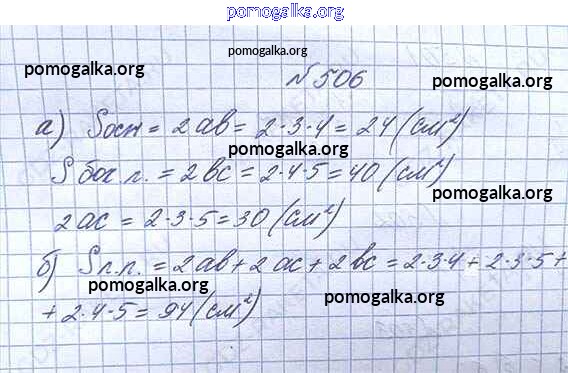 pomogalka.org
pomogalka.org
pomogalka.org
№ 506
pomogalka.org
а) Sосн = 2ab = 2·3·4 = 24 (см²)
pomogalka.org
S бок.п. = 2bc = 2·4·5 = 40 (см²)
pomogalka.org
2ac = 2·3·5 = 30 (см²)
б) Sп.п. = 2ab + 2ac + 2bc = 2·3·4 + 2·3·5 +
pomogalka.org
pomogalka.org
+ 2·4·5 = 94 (см²)